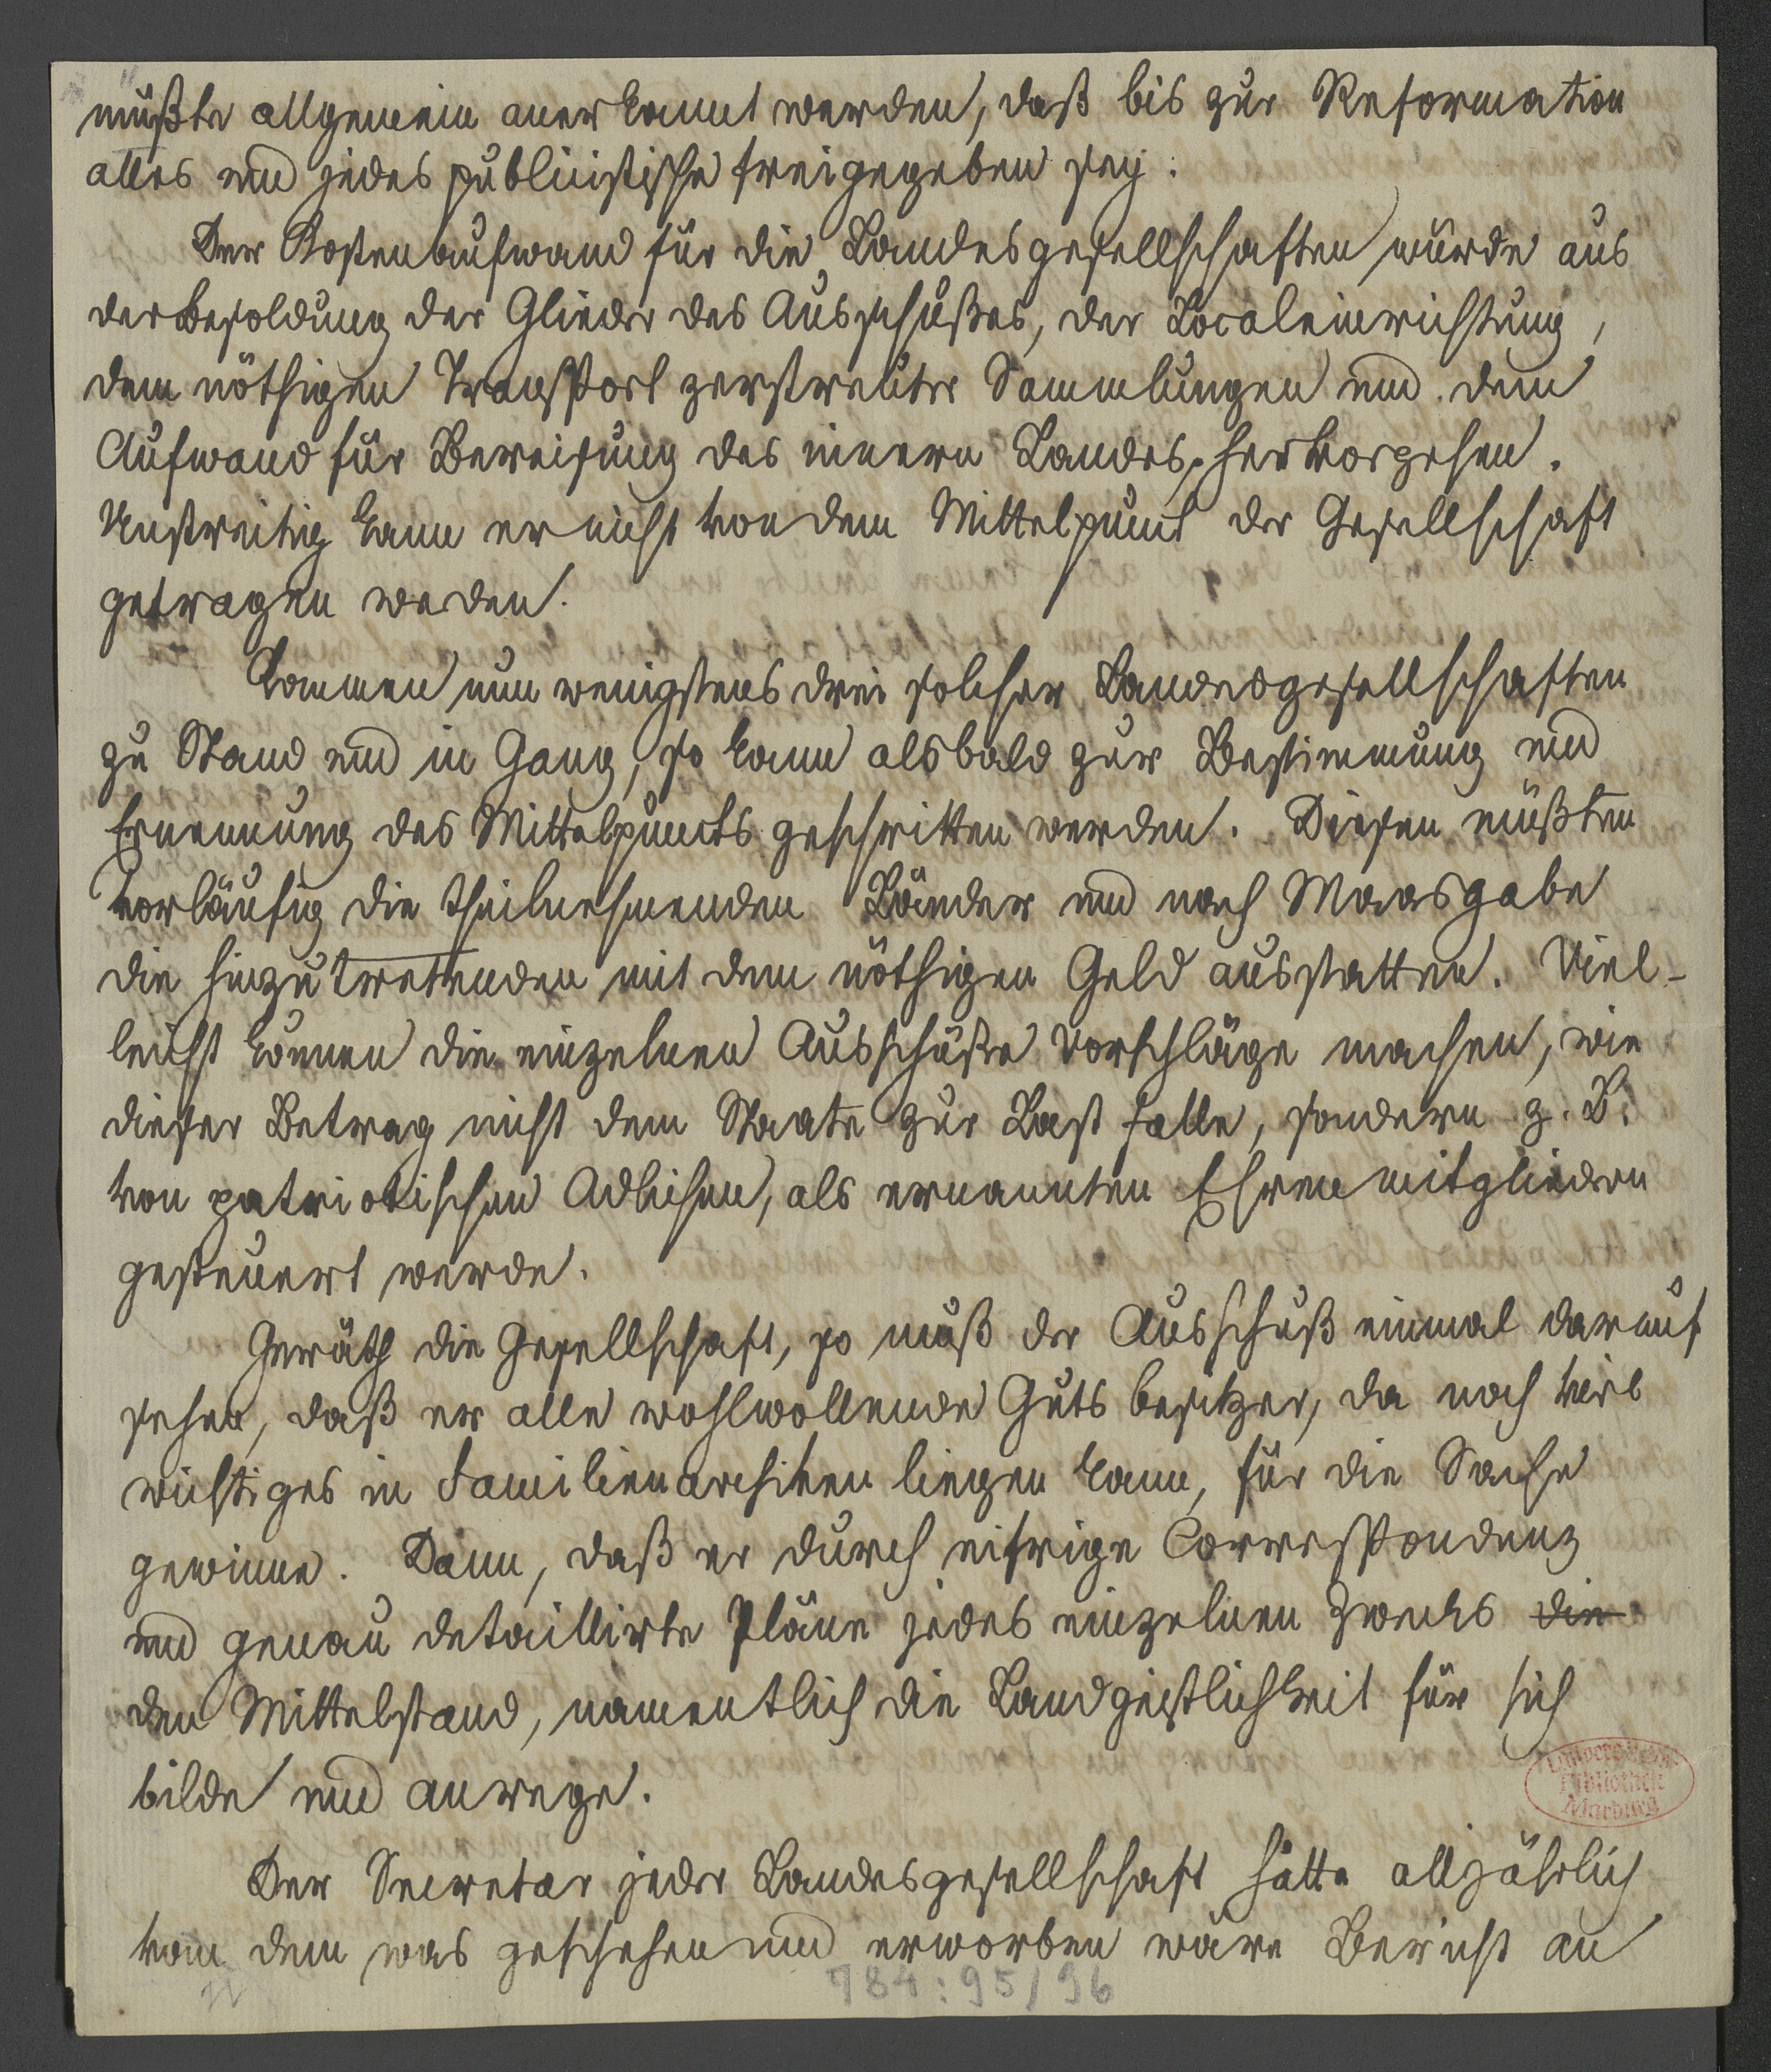 müßte allgemein anerkannt werden, daß bis zur Reformation
alles und jedes publicistische freigegeben sey.
Der Kostenaufwand für die Landesgesellschaften würde aus
der Besoldung der Glieder des Ausschußes, der Localeinrichtung,
dem nöthigen Transport zerstreuter Sammlungen und dem
Aufwand für Bereisung des innern Landes, hervorgehen.
Unstreitig kann er nicht von dem Mittelpunct der Gesellschaft
getragen werden.
Kommen nun wenigstens drei solcher Landesgesellschaften
zu Stand und in Gang, so kann alsbald zur Bestimmung und
Ernennung des Mittelpuncts geschritten werden. Diesen müßten
vorläufig die theilnehmenden Länder und nach Maasgabe
die hinzutretenden mit dem nöthigen Geld ausstatten. Viel-
leicht können die einzelnen Ausschüße Vorschläge machen, wie
dieser Betrag nicht dem Staate zur Last falle, sondern z. B.
von patriotischen Adlichen, als ernannten Ehrenmitgliedern
gesteuert werde.
Geräth die Gesellschaft, so muß der Ausschuß einmal darauf
sehen, daß er alle wohlwollende Gutsbesitzer, da noch viel
wichtiges in Familienarchiven liegen kann, für die Sache
gewinne. Dann, daß er durch eifrige Correspondenz
und genau detaillirte Pläne jedes einzelnen Zwecks die
den Mittelstand, namentlich die Landgeistlichkeit für sich
bilde und anrege.
Universitäts-
Bibliothek
Marburg
Der Secretar jeder Landesgesellschaft hätte alljährlich
von dem was geschehen und erworben wäre Bericht an
784:95/96